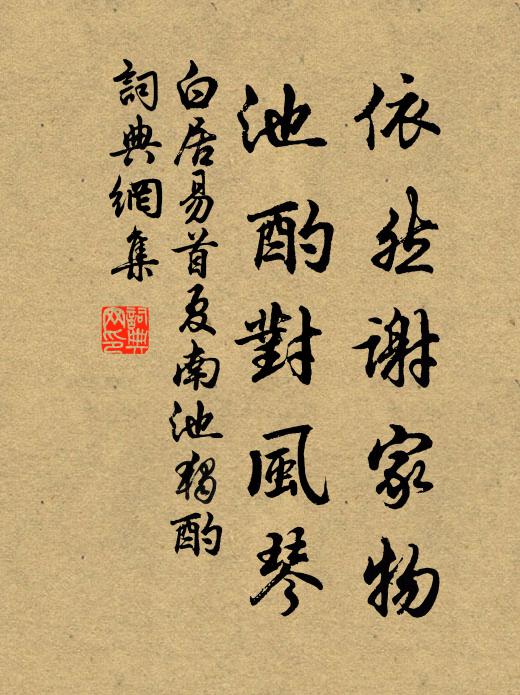 依然謝家物
池酌對風琴
白居易首夏南池獨酌
詞典網集
詞典
网印